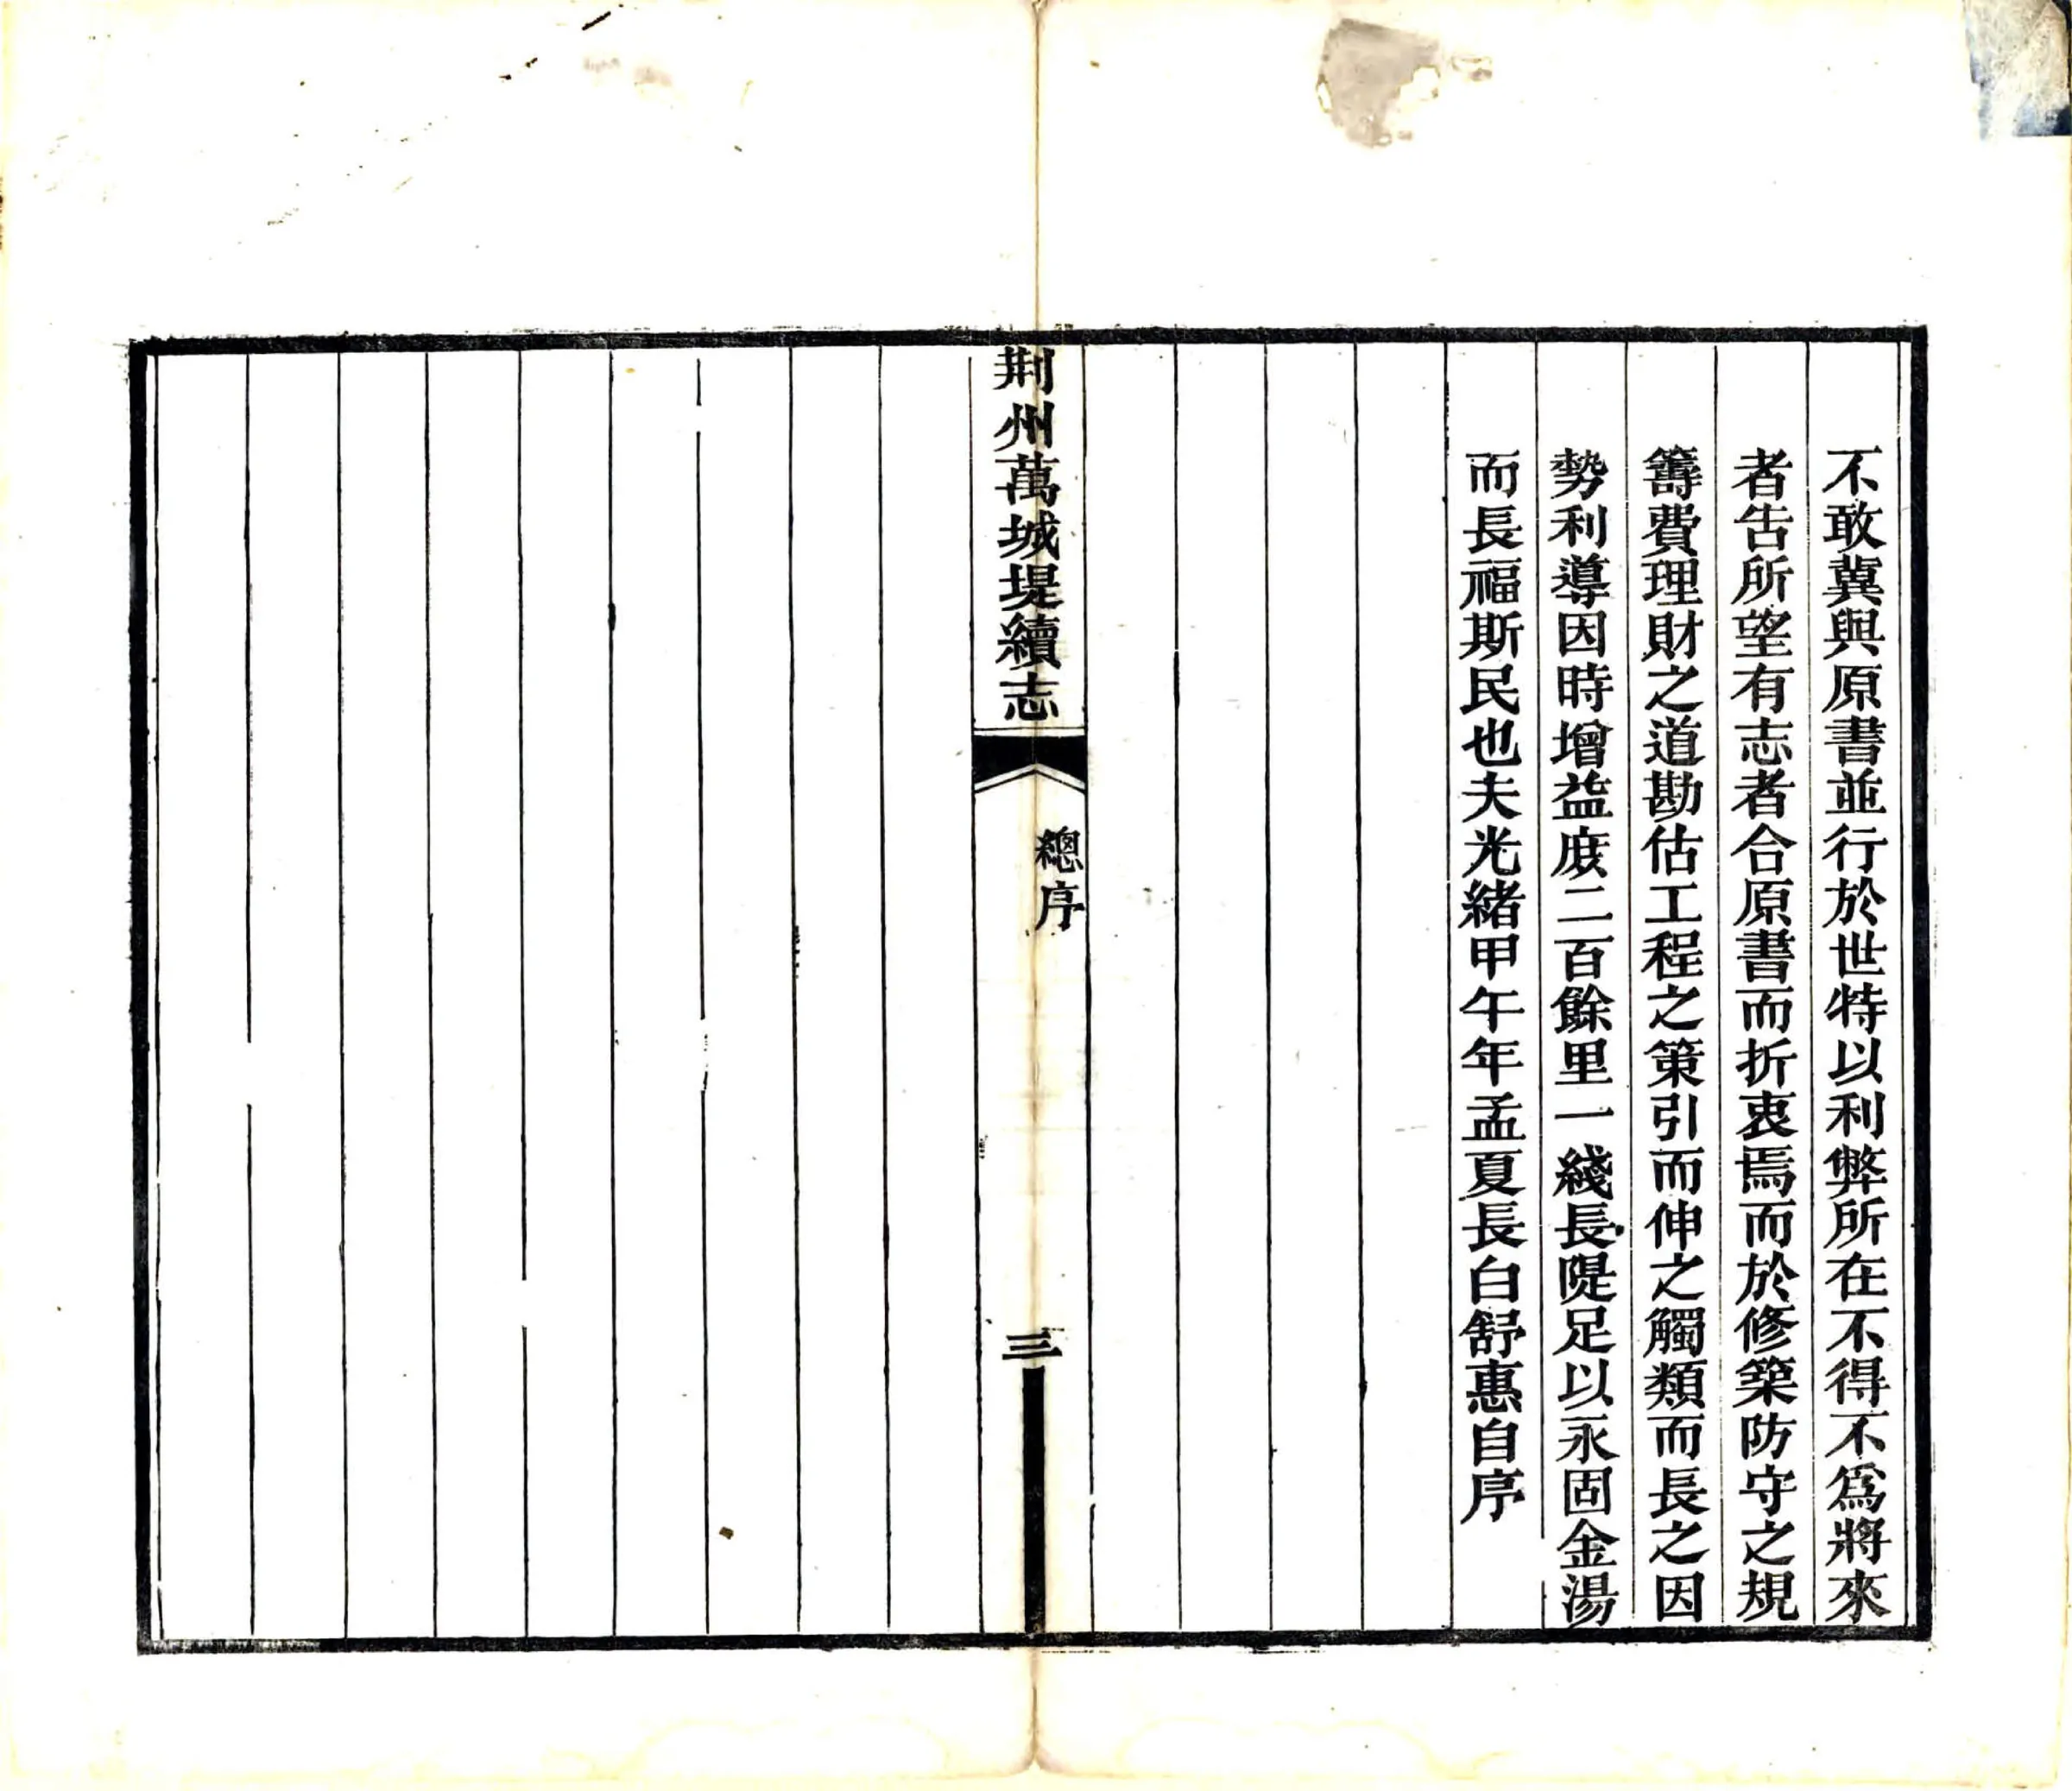 不敢冀與原書並行於世特以利弊所在不得不爲將來
者告所望有志者合原書而折衷焉而於修築防守之規
籌費理財之道勘估工程之策引而伸之觸類而長之因
勢利導因時增益庶二百餘里一綫長隄足以永固金湯
而長福斯民也夫光緒甲午年孟夏長白舒惠自序
荆州萬城堤續志
總序
三